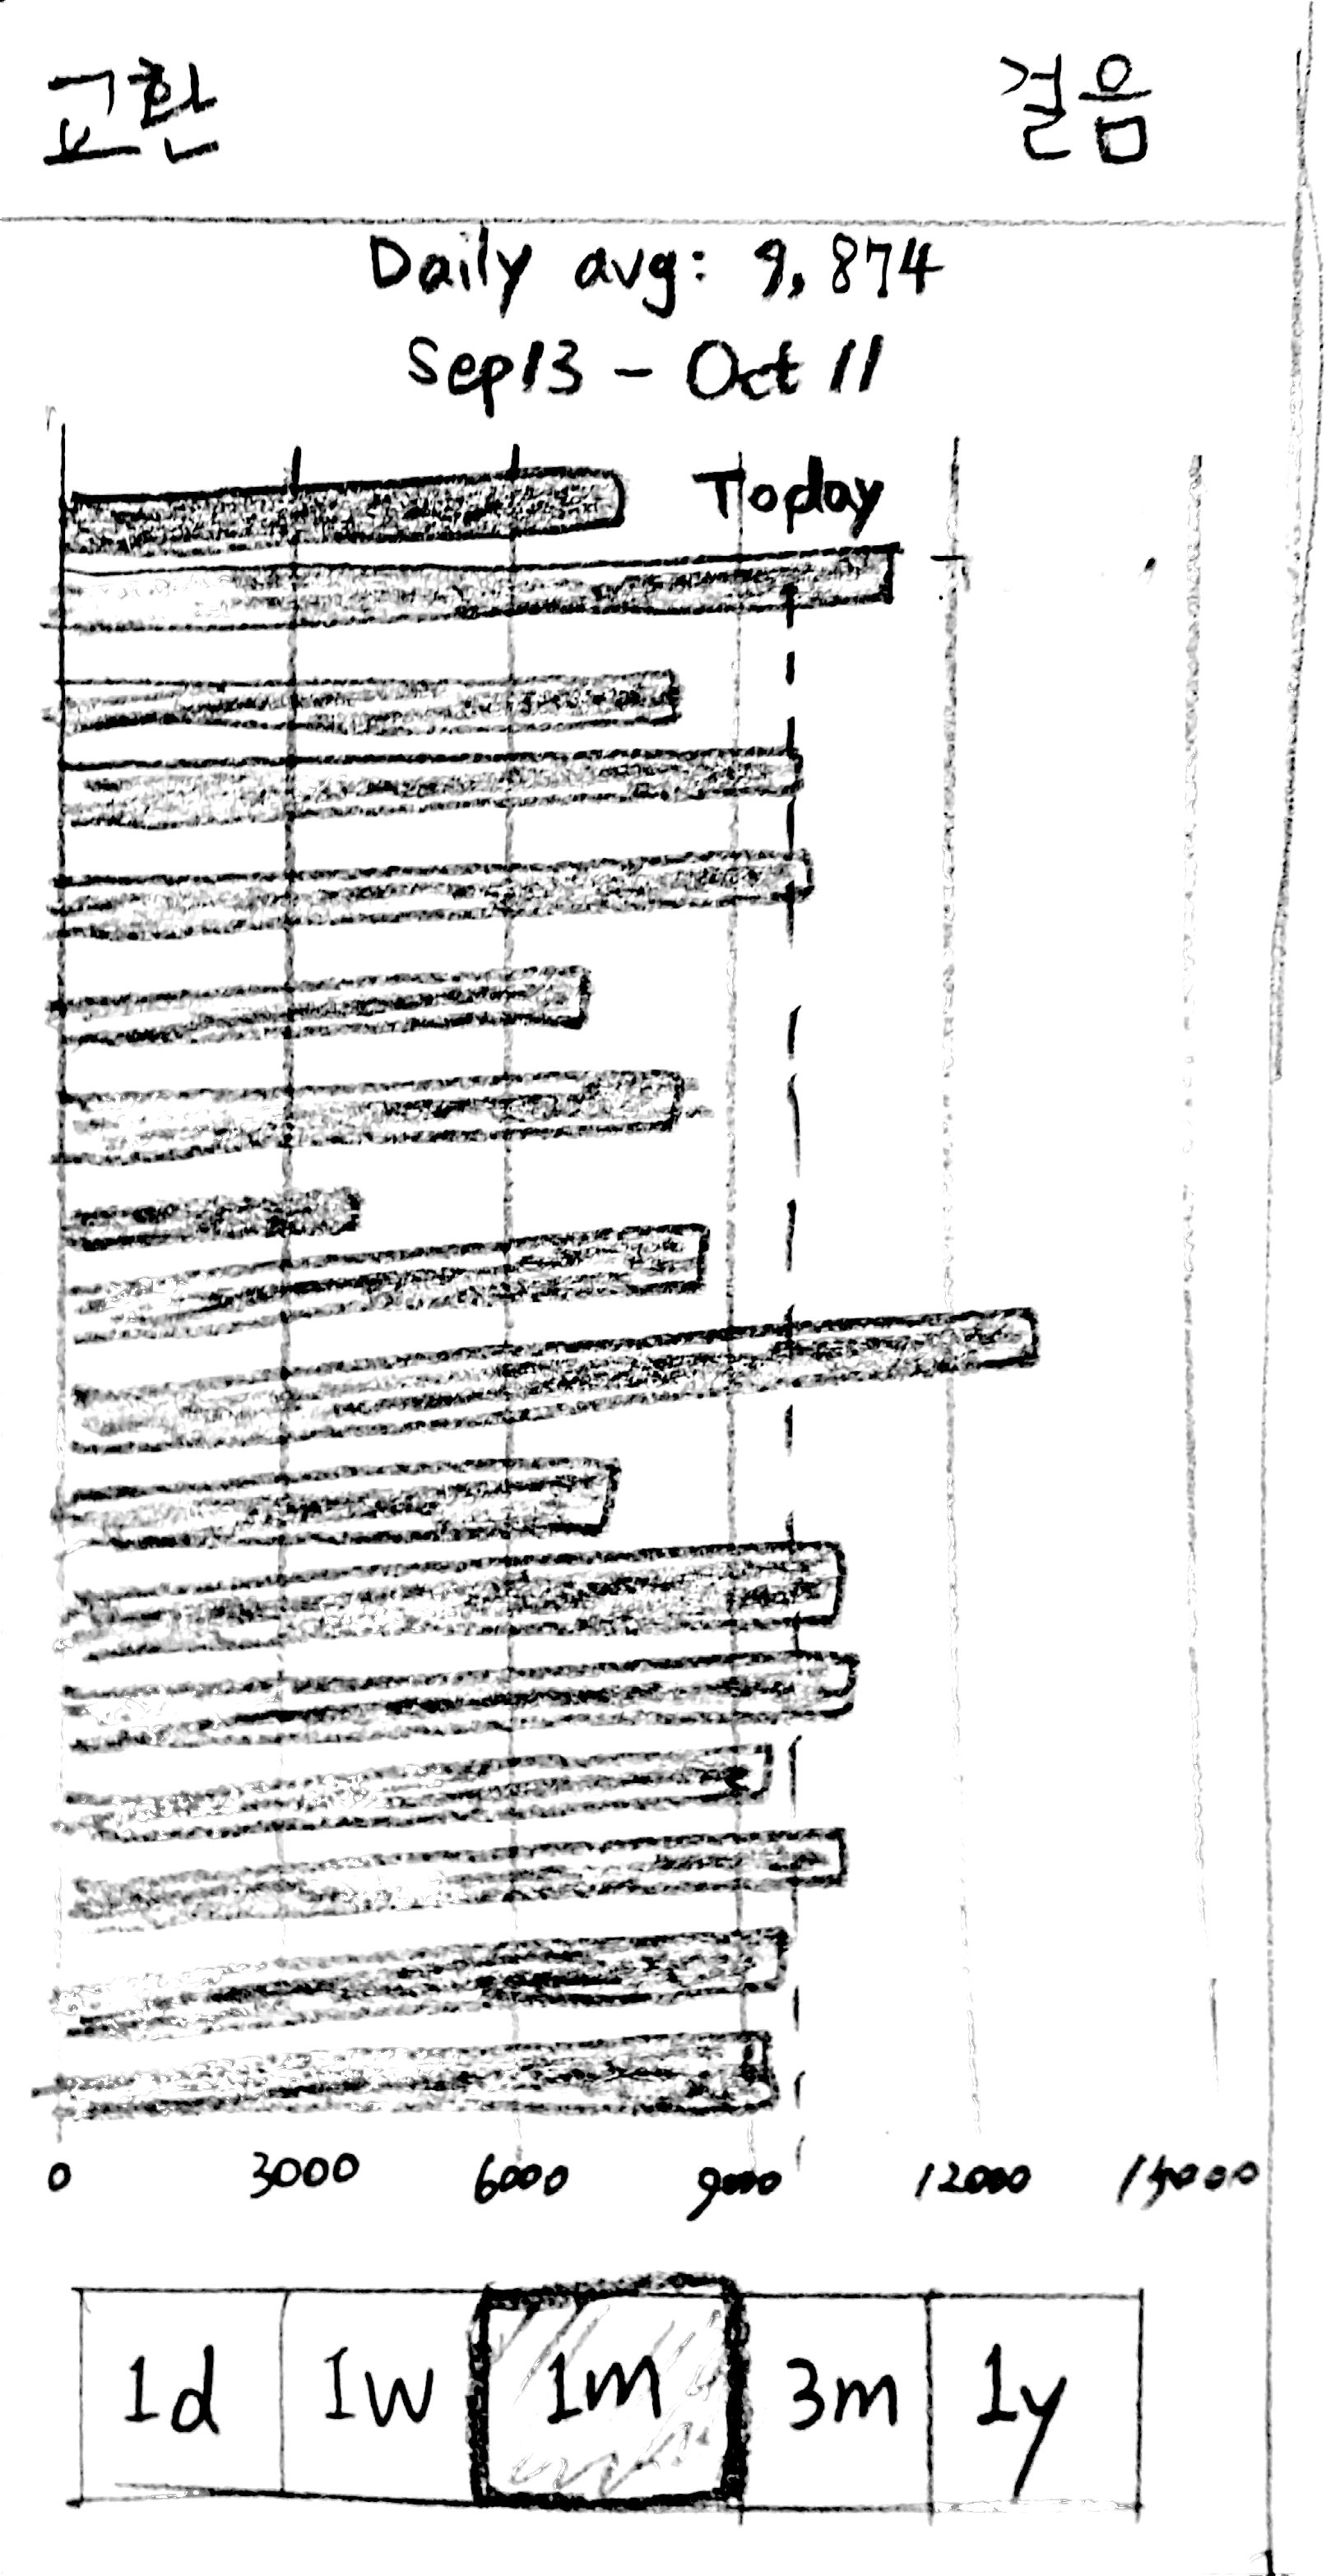 교환 걸음
Daily avg: 9,874
Sep 13 - Oct 11
Today
0 3000 6000 9000 12000 15000
1d 1w 1m 3m 1y